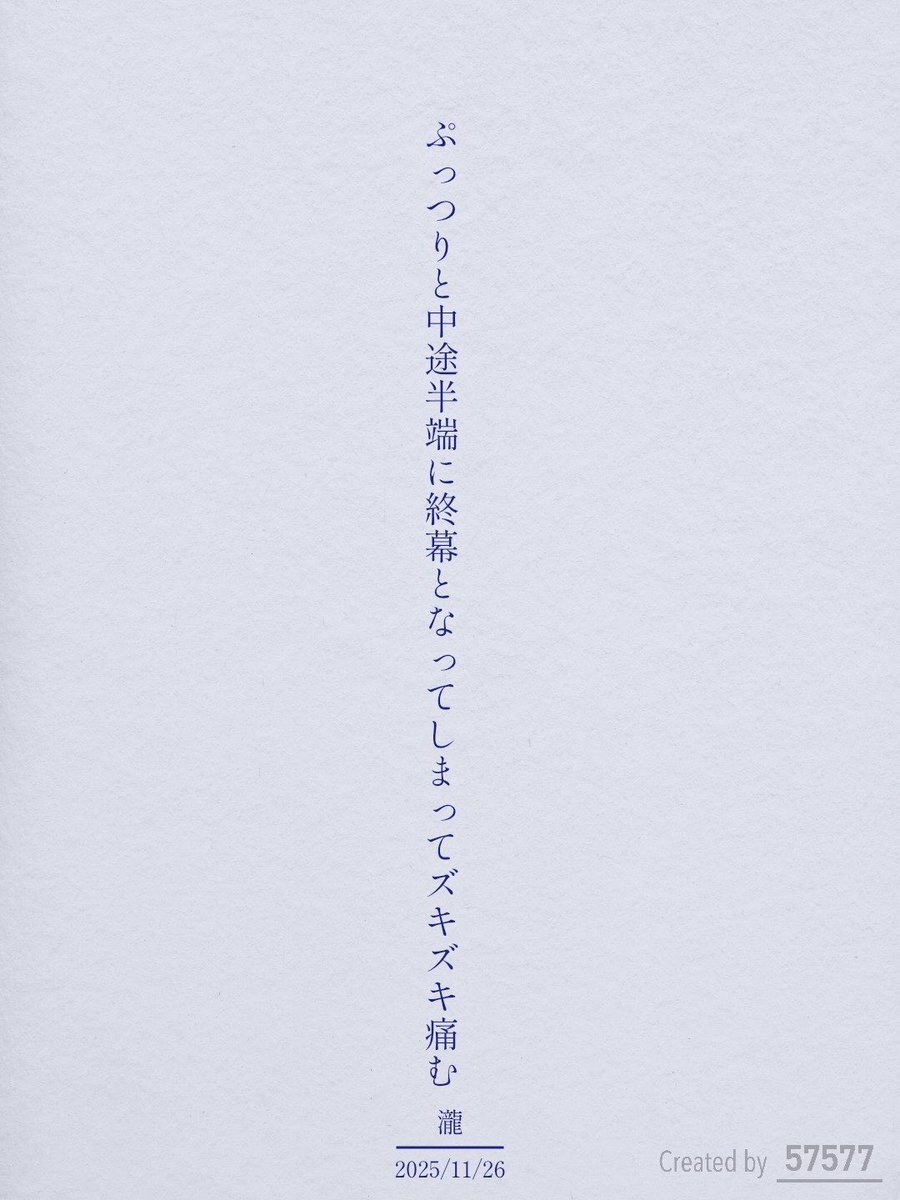 ぷっつりと中途半端に終幕となってしまってズキズキ痛む
瀧
2025/11/26
Created by 57577